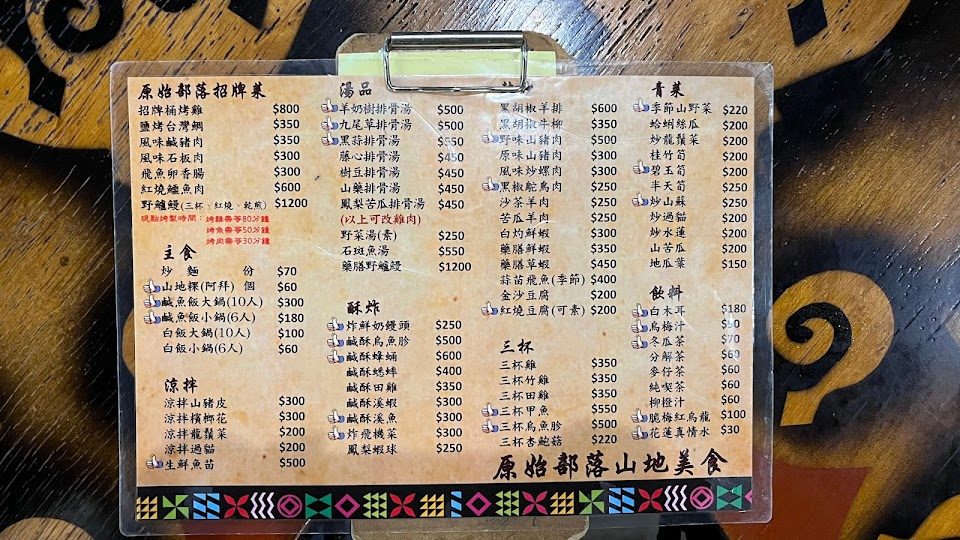 原始部落招牌菜
招牌桶烤雞 $800
鹽烤台灣鯛 $350
風味鹹豬肉 $350
風味石板肉 $300
飛魚卵香腸 $300
紅燒鱷魚肉 $600
野鱸鰻(三杯、紅燒、乾煎) $1200
現點烤製時間：烤雞需等80分鐘
烤魚需等50分鐘
烤肉需等30分鐘
主食
炒 麵 份 $70
山地粿(阿拜) 個 $60
鹹魚飯大鍋(10人) $300
鹹魚飯小鍋(6人) $180
白飯大鍋(10人) $100
白飯小鍋(6人) $60
涼拌
涼拌山豬皮 $300
涼拌檳榔花 $300
涼拌龍鬚菜 $200
涼拌過貓 $200
生鮮魚苗 $500
湯品
羊奶樹排骨湯 $500
九尾草排骨湯 $500
黑蒜排骨湯 $550
藤心排骨湯 $450
樹豆排骨湯 $450
山藥排骨湯 $450
鳳梨苦瓜排骨湯 $450
(以上可改雞肉)
野菜湯(素) $250
石斑魚湯 $550
藥膳野鱸鰻 $1200
酥炸
炸鮮奶饅頭 $250
鹹酥烏魚胗 $500
鹹酥蜂蛹 $600
鹹酥蟋蟀 $400
鹹酥田雞 $350
鹹酥溪蝦 $300
鹹酥溪魚 $300
炸飛機菜 $300
鳳梨蝦球 $250
黑胡椒羊排 $600
黑胡椒牛柳 $350
野味山豬肉 $500
原味山豬肉 $300
風味炒螺肉 $300
黑椒鴕鳥肉 $250
沙茶羊肉 $250
苦瓜羊肉 $250
白灼鮮蝦 $300
藥膳鮮蝦 $350
藥膳草蝦 $450
蒜苗飛魚(季節) $400
金沙豆腐 $200
紅燒豆腐(可素) $200
三杯
三杯雞 $350
三杯竹雞 $350
三杯田雞 $350
三杯甲魚 $550
三杯烏魚胗 $500
三杯杏鮑菇 $220
青菜
季節山野菜 $220
蛤蜊絲瓜 $200
炒龍鬚菜 $200
桂竹筍 $200
碧玉筍 $200
半天筍 $250
炒山蘇 $250
炒過貓 $200
炒水蓮 $200
山苦瓜 $200
地瓜葉 $150
飲料
白木耳 $180
烏梅汁 $90
冬瓜茶 $70
分解茶 $60
麥仔茶 $60
純喫茶 $60
柳橙汁 $60
脆梅紅烏龍 $100
花蓮真情水 $30
原始部落山地美食